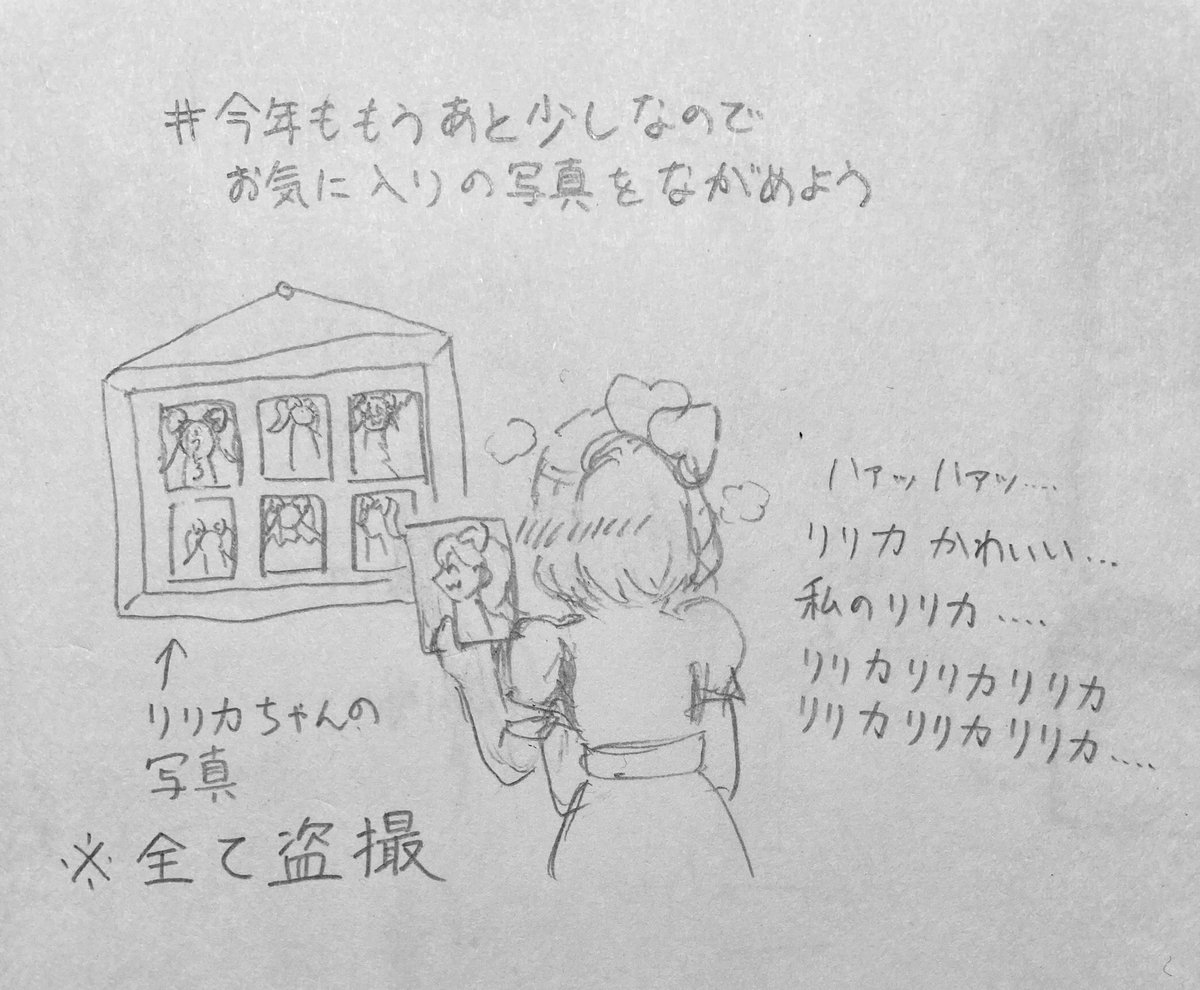 #今年ももうあと少しなので
お気に入りの写真をながめよう
ハァッハァッ....
リリカ かわいい...
私のリリカ....
リリカリリカリリカ
リリカリリカリリカ....
↑
リリカちゃんの
写真
※全て盗撮